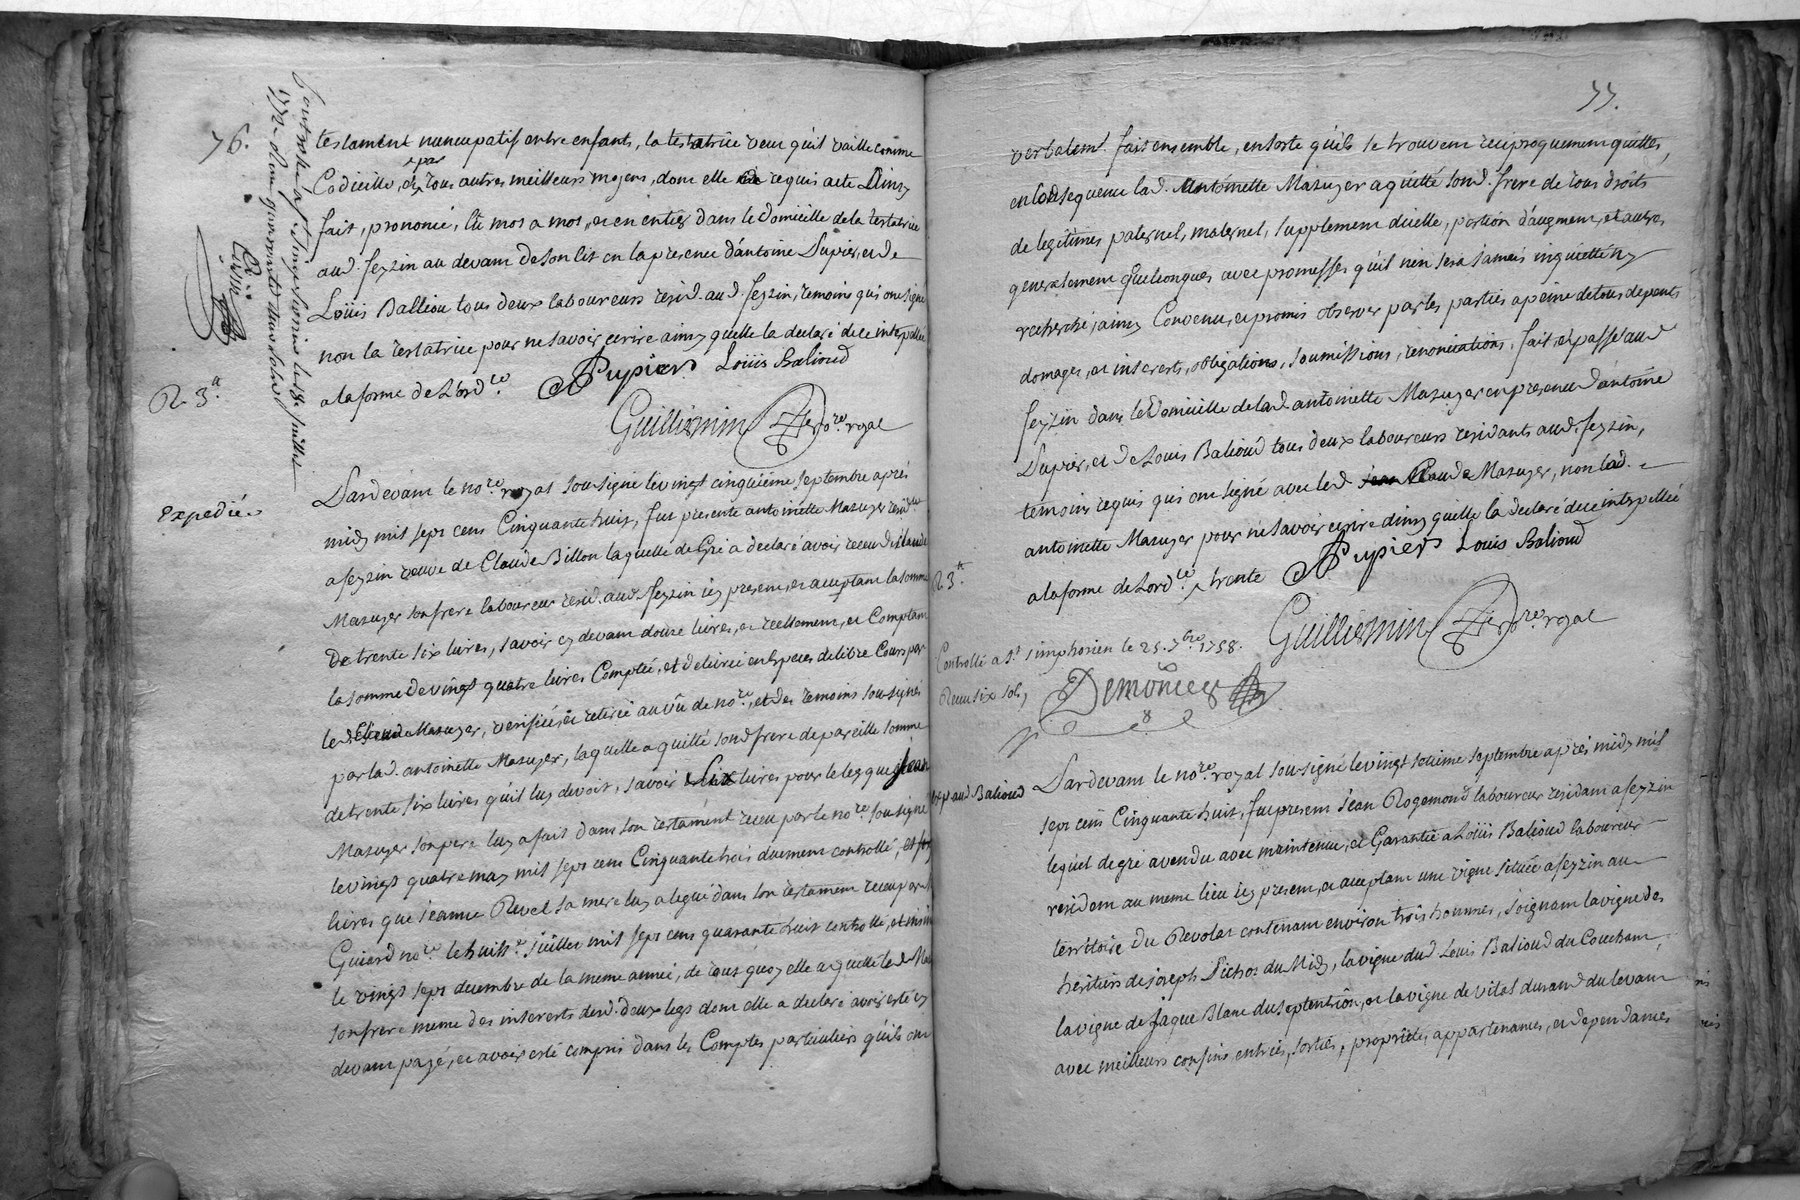 76.
testament nuncupatif entre enfants, la testatrice veut qu'il vaille comme
Codicille, et par tous autres meilleurs moyens, dont elle a requis acte Ainsy
fait, prononcé, lû mot a mot, et en entier dans le domicille de la testatrice
aud. feyzin au devant de son lit en la presence d'antoine Pupier, et de
Loüis Balliou tous deux laboureurs resid. aud. feyzin, temoins qui ont signé
non la testatrice pour ne savoir ecrire ainsy quelle la declaré de ce interpellée
a la forme de L'ord.ce Pupier Loüis Balioud
R. 3.a
Guilliermin no.re royal
Expedié
Pardevant le no.re royal sousigné le vingt cinquieme septembre après
midy mil sept cens Cinquante huit, fut presente antoinette Mazuyer resid.te
a feyzin veuve de Claude Billon laquelle de Gré a declaré avoir receu de Claude
Mazuyer son frere laboureur resid. aud. feyzin icy present, et acceptant la somme
De trente six livres, savoir cy devant douze livres, et reellement, et Comptant
la somme de vingt quatre livres Comptée, et delivrée en Especes de libre Cours par
led. Claude Mazuyer, verifiée, et retirée au vû de no.re, et des temoins sousignés
par lad. antoinette Mazuyer, laquelle a quitté sond. frere de pareille somme
de trente six livres qu'il luy devoit, savoir Six livres pour le leg que Jean
Mazuyer son pere luy a fait dans son testament receu par le no.re sousigné
le vingt quatre may mil sept cens Cinquante trois duement controllé, et
livres que jeanne Revel sa mere luy a legué dans son testament receu par
Guiard no.re le huit juillet mil sept cens quarante huit controllé, et
le vingt sept decembre de la meme année, de tout quoy elle a quitté led. Maz
son frere meme des interests desd. deux legs dont elle a declaré avoir esté cy
devant payé, et avoir esté compris dans les Comptes particuliers qu'ils ont
77.
verbalem.t fait ensemble, en sorte qu'ils se trouvent reciproquement quittes,
en Consequence lad. Antoinette Mazuyer a quitté sond. frere de tous droits
de legitimes paternel, maternel, supplement d'icelle, portion d'augment, et autres
generalement quelconques avec promesses qu'il n'en sera jamais inquietté ny
recherché, ainsy Convenu, et promis observer par les parties a peine de tous depents
domages, et interests, obligations, soumissions, renonciations, fait, et passé aud.
feyzin dans le Domicille de lad. antoinette Mazuyer en presence d'antoine
Pupier, et de Louis Balioud tous deux laboureurs residants aud. feyzin,
temoins requis qui ont signé avec led. Claude Mazuyer, non lad.
antoinette Mazuyer pour ne savoir ecrire ainsy quelle la declaré de ce interpellée
a la forme de Lord.ce trente Pupier Louis Balioud
R 3.a
Guilliermin no.re royal
Controllé a St. simphorien le 25. 7bre 1758.
Receu six sols
Demoncer
exp. aud. Balioud
Pardevant le no.re royal sousigné le vingt seieme septembre après midy mil
sept cens Cinquante huit, fut present Jean Rogemond laboureur residant a feyzin
lequel de gré a vendu avec maintenue, et Garantie a Loüis Balioud laboureur
resident au meme lieu icy present, et acceptant une vigne située a feyzin au
territoire du Revolat contenant environ trois hommes, joignant la vigne des
héritiers de joseph Pichot du Midy, la vigne dud. Louis Balioud du Couchant,
la vigne de jaque Blanc du septentrion, et la vigne de vital durand du levant
avec meilleurs confins, entrées, sorties, propriétés, appartenances, et dependances